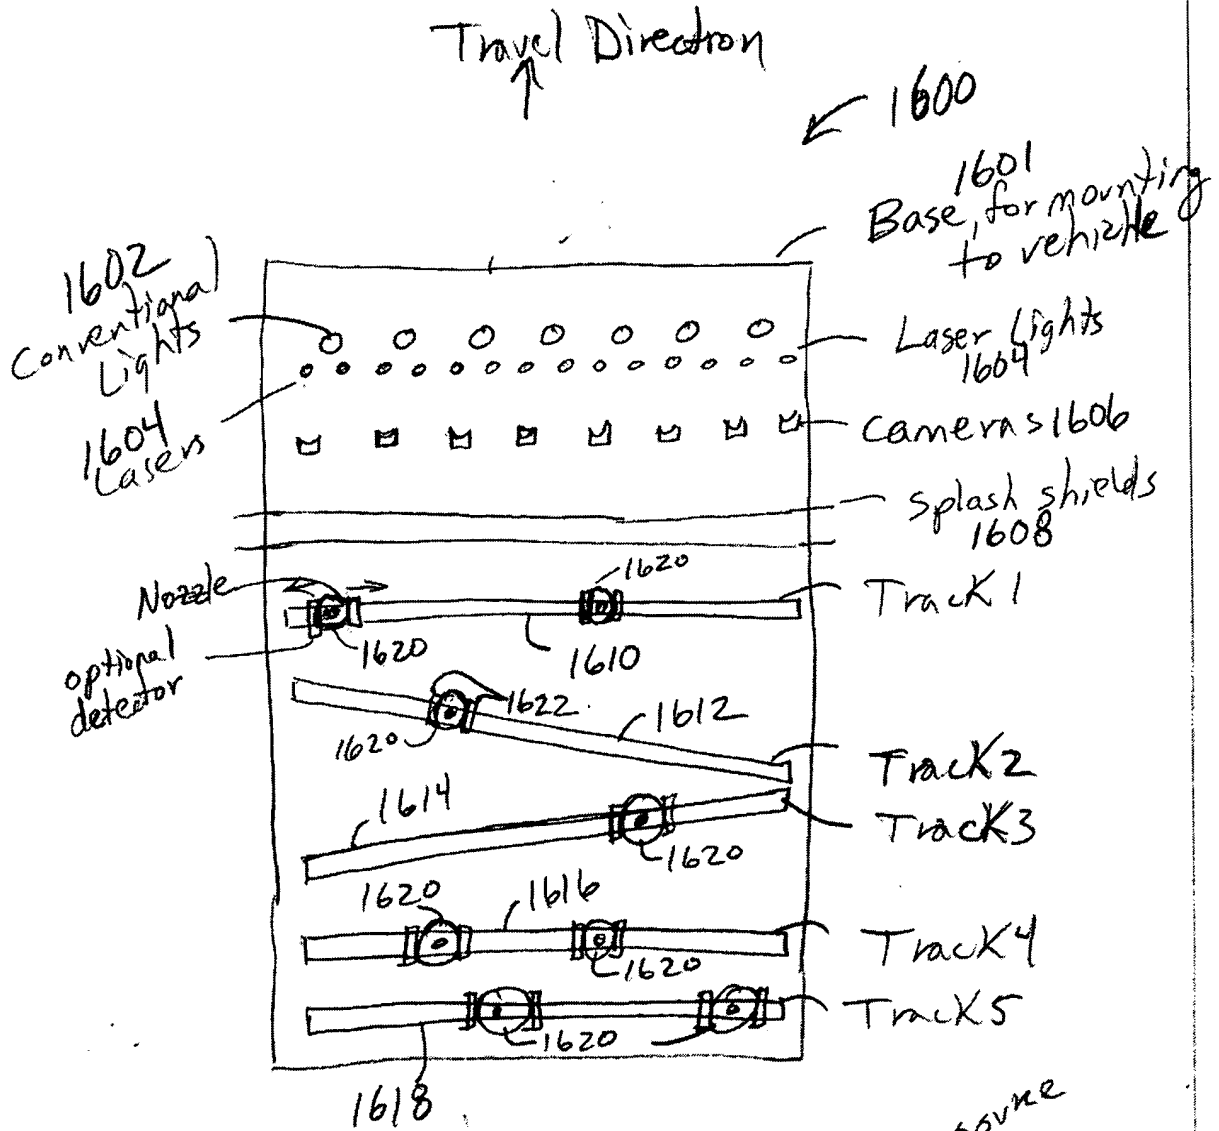 Travel Direction
1600
1601
Base, for mounting
to vehicle
1602
Conventional
Lights
Laser Lights
1604
1604
Lasers
Cameras 1606
Splash shields
1608
Nozzle
1620
Track 1
optional
detector
1620
1610
1622
1612
1620
Track 2
1614
Track 3
1620
1620
1616
Track 4
1620
Track 5
1620
1618
source